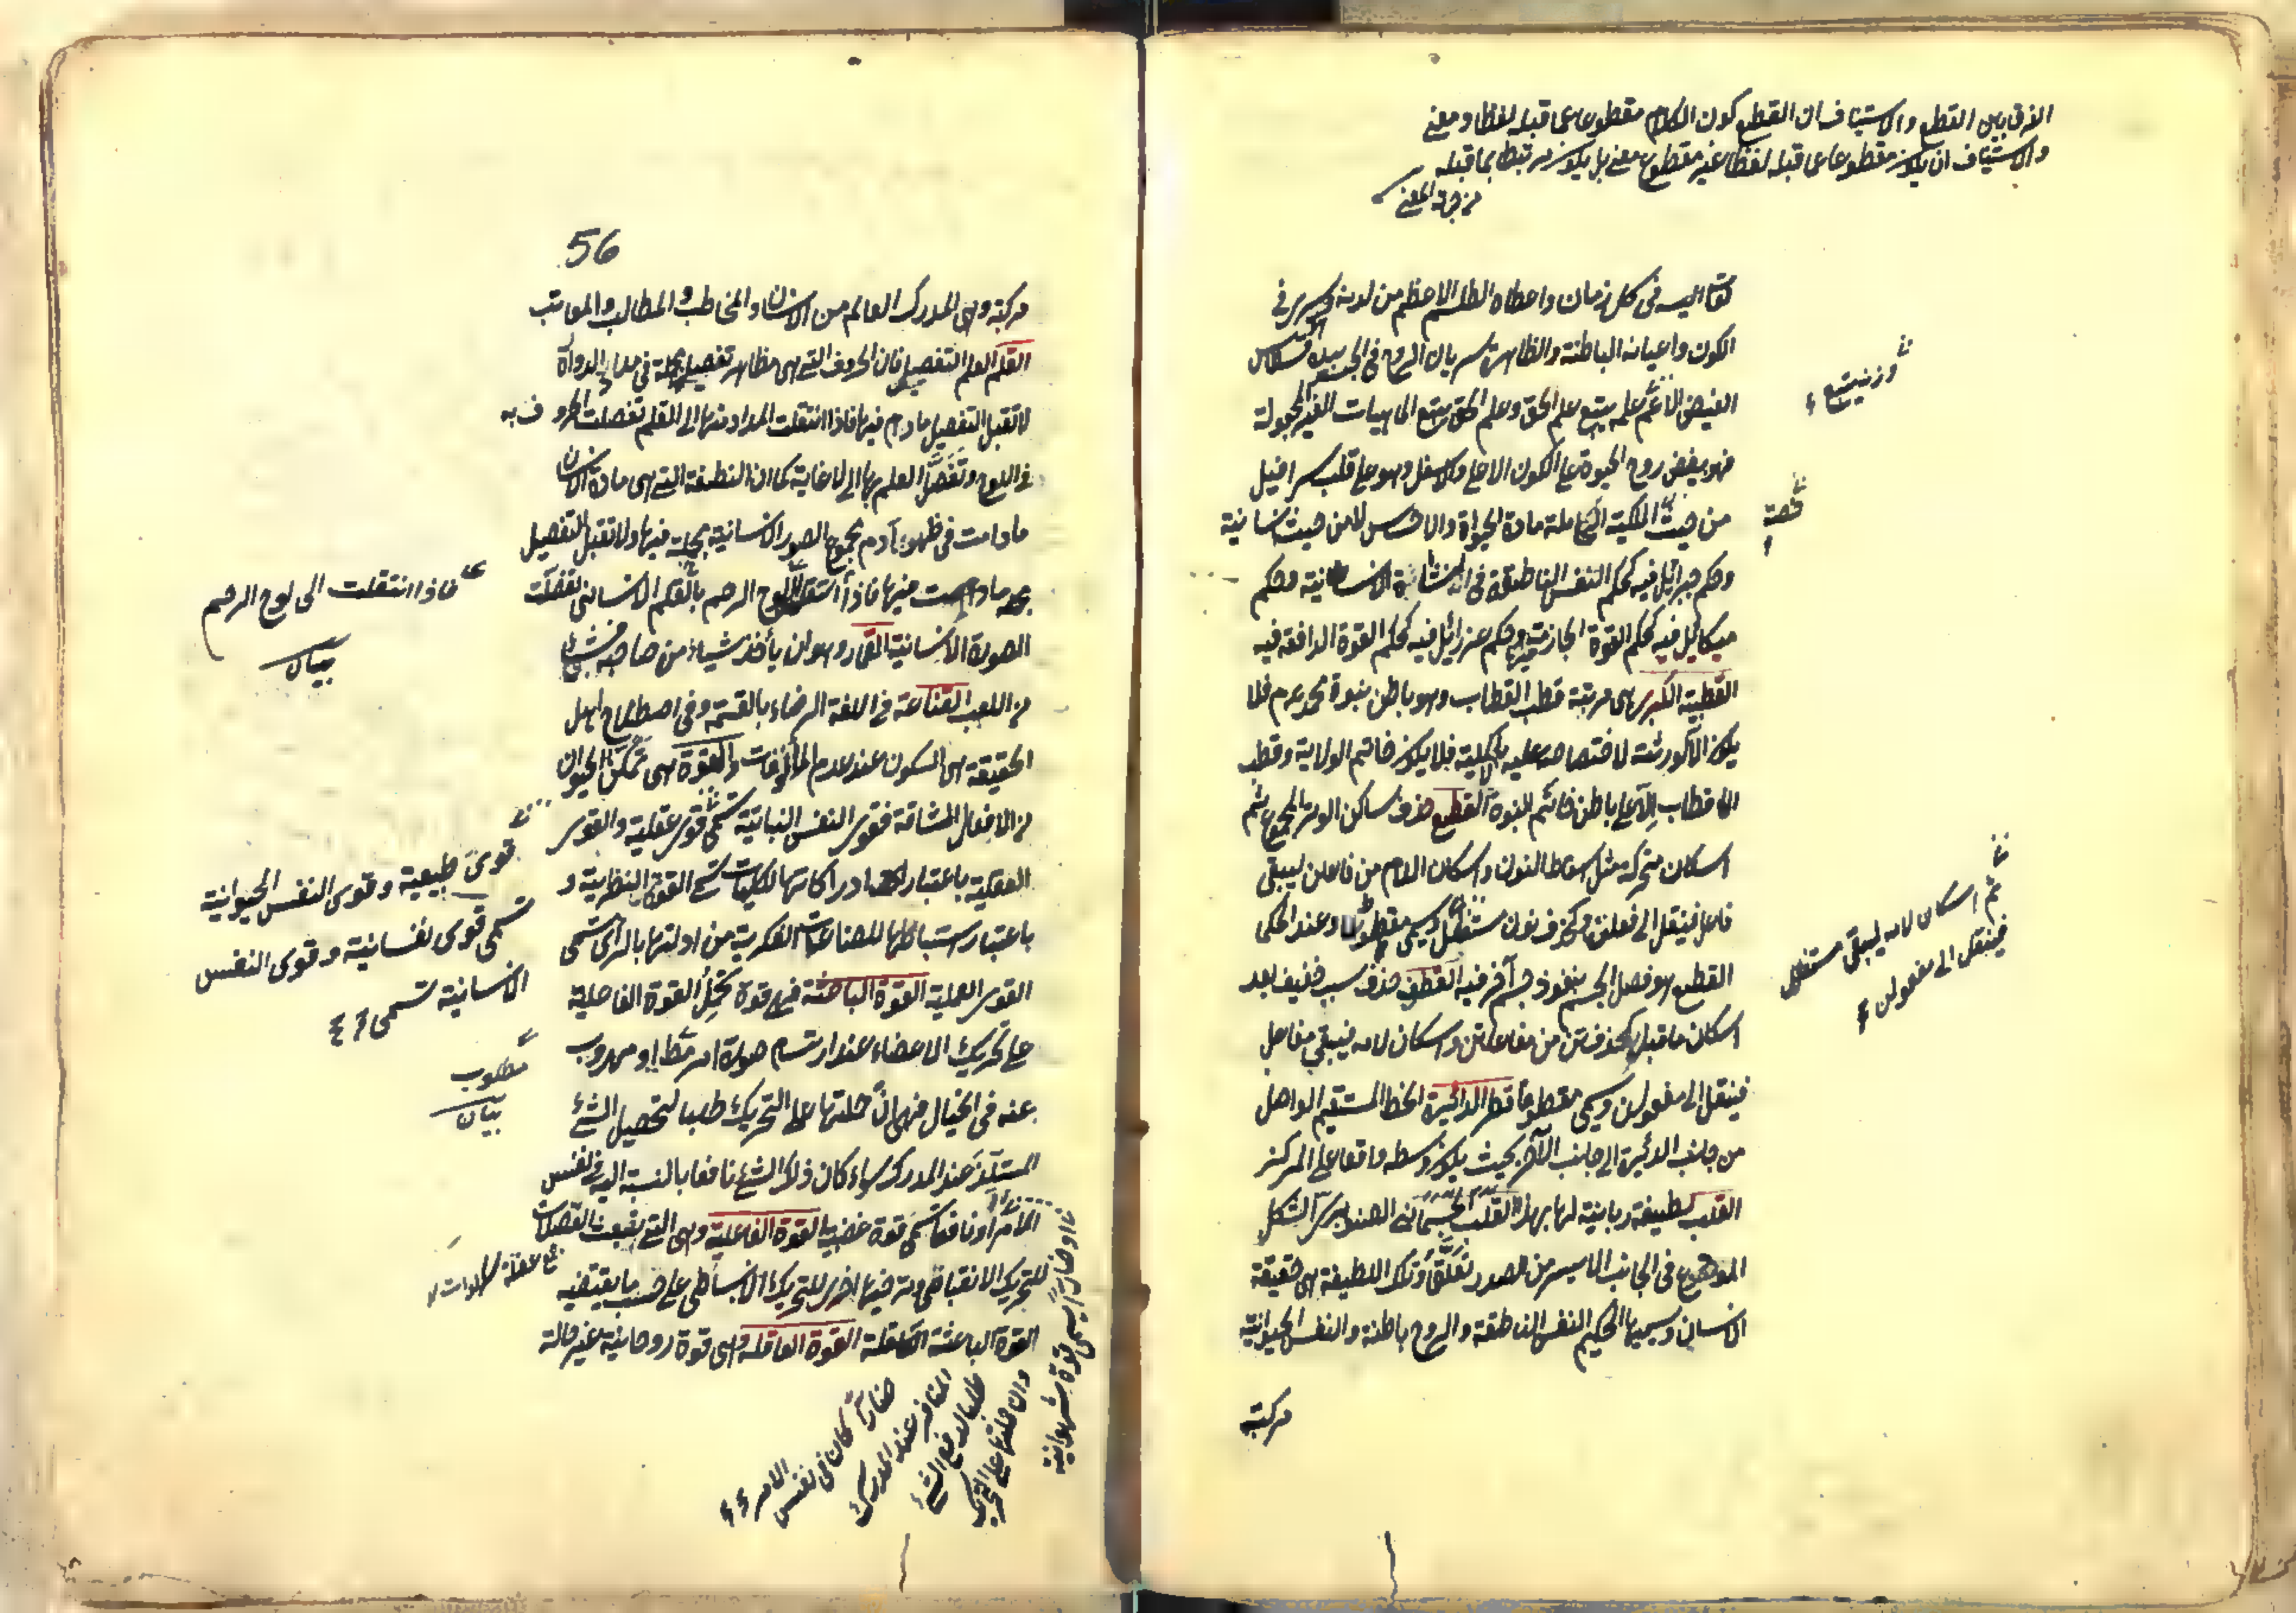 الفرق بين القطع والاستيناف ان القطع كون الكلام مقطوعا عما قبله لفظا ومعنى
والاستيناف ان يكون مقطوعا عما قبله لفظا غير مقطوع معنى بل يكون مرتبطا بما قبله
من جهة المعنى
تعالى اليه فى كل زمان واعطاه الطلسم الاعظم من لدنه ويسرى فى
الكون واعيانه الباطنة والظاهرة سريان الروح فى الجسد بيده قسطاس
الفيض الاعم علمه يتبع علم الحق وعلم الحق يتبع الماهيات الغير المجعولة
وزنه يتبع
فهو يفيض روح الحيوة على الكون الاعلى والاسفل وهو على قلب اسرافيل
من حيث الملكية الحاملة مادة الحيواة والاحساس لا من حيث انسانية
حصة
وحكم جبرائيل فيه كحكم النفس الناطقة فى النشاة الانسانية وحكم
ميكائيل فيه كحكم القوة الجاذبة فيها وحكم عزرائيل فيه كحكم القوة الدافعة فيه
القطبية الكبرى هى مرتبة قطب القطاب وهو باطن نبوة محمد عم فلا
يكون الا لورثته لاختصاصه عليه بالاكملية فلا يكون خاتم الولاية وقطب
الاقطاب الا على باطن خاتم النبوة القطع حذف ساكن الوتد المجموع ثم
اسكان متحركه مثل اسقاط النون واسكان اللام من فاعلن ليبقى
فاعل فينقل الى فعلن وكحذف نون مستفعلن ويسمى مقطوعا وعند الحكماء
ثم اسكان لامه ليبقى مستفعل
فينقل الى مفعولن
القطع هو فصل الجسم بنفوذ جسم آخر فيه القطف حذف سبب خفيف بعد
اسكان ما قبله كحذف تن من مفاعلتن واسكان لامه فيبقى مفاعل
فينقل الى فعولن ويسمى مقطوفا قطر الدائرة الخط المستقيم الواصل
من جانب الدائرة الى جانب الآخر بحيث يكون وسطه واقعا على المركز
القلب لطيفة ربانية لها بهذا القلب الجسمانى الصنوبرى الشكل
الموضوع فى الجانب الايسر من الصدر تعلق وتلك اللطيفة هى حقيقة
الانسان ويسميها الحكيم النفس الناطقة والروح باطنة والنفس الحيوانية
مركبة
56
مركبة وهى المدرك العالم من الانسان والمخاطب والمطالب والمعاتب
القلم العلم التفصيل فان الحروف التى هى مظاهر تفصيله مجملة فى مداد الدواة
لا تقبل التفصيل ما دام فيها فاذا انتقلت المداد منها الى القلم تفصلت الحروف به
فى اللوح وتفصل العلم بها الى لا غاية كما ان النطفة التى هى مادة الانسان
ما دامت فى ظهر آدم مجموع الصور الانسانية مجملة فيها ولا تقبل التفصيل
ما دامت فيها فاذا انتقلت الى لوح الرحم بالقلم الانسانى تفصلت
فاذا انتقلت الى لوح الرحم
بيان
الصورة الانسانية القمار وهو ان يأخذ شيئا من صاحبه
من اللعب القناعة فى اللغة الرضاء بالقسمة وفى اصطلاح اهل
الحقيقة هى السكون عند عدم المألوفات القوة هى تمكن الحيوان
من الافعال الشاقة فقوى النفس النباتية تسمى قوى عقلية والقوى
قوى طبيعية وقوى النفس الحيوانية
تسمى قوى نفسانية وقوى النفس
الانسانية تسمى
العقلية باعتبار ادراكاتها للكليات تسمى القوة النظرية و
باعتبار استنباطها للصناعات الفكرية من ادلتها بالرأى تسمى
القوى العملية القوة الباعثة فهى قوة تحمل القوة الفاعلية
على تحريك الاعضاء عند ارتسام صورة امر مط او مهروب
مطلوب
بيان
عنه فى الخيال فهى ان حملتها على التحريك طلبا لتحصيل الشئ
المستلذ عند المدرك سواء كان ذلك الشئ نافعا بالنسبة اليه فى نفس
الامر او نافعا تسمى قوة غضبية القوة الفاعلية وهى التى تبعث العضلات
للتحريك الانقباضى وترخيها اخرى للتحريك الانبساطى على حسب ما يقتضيه
القوة الباعثة القوة العاقلة وهى قوة روحانية غير حالة
او ضارا يسمى قوة شهوانية
وان حملتها على التحريك
طلبا لدفع الشئ
المنافر عند المدرك
ضارا كان فى نفس
الامر